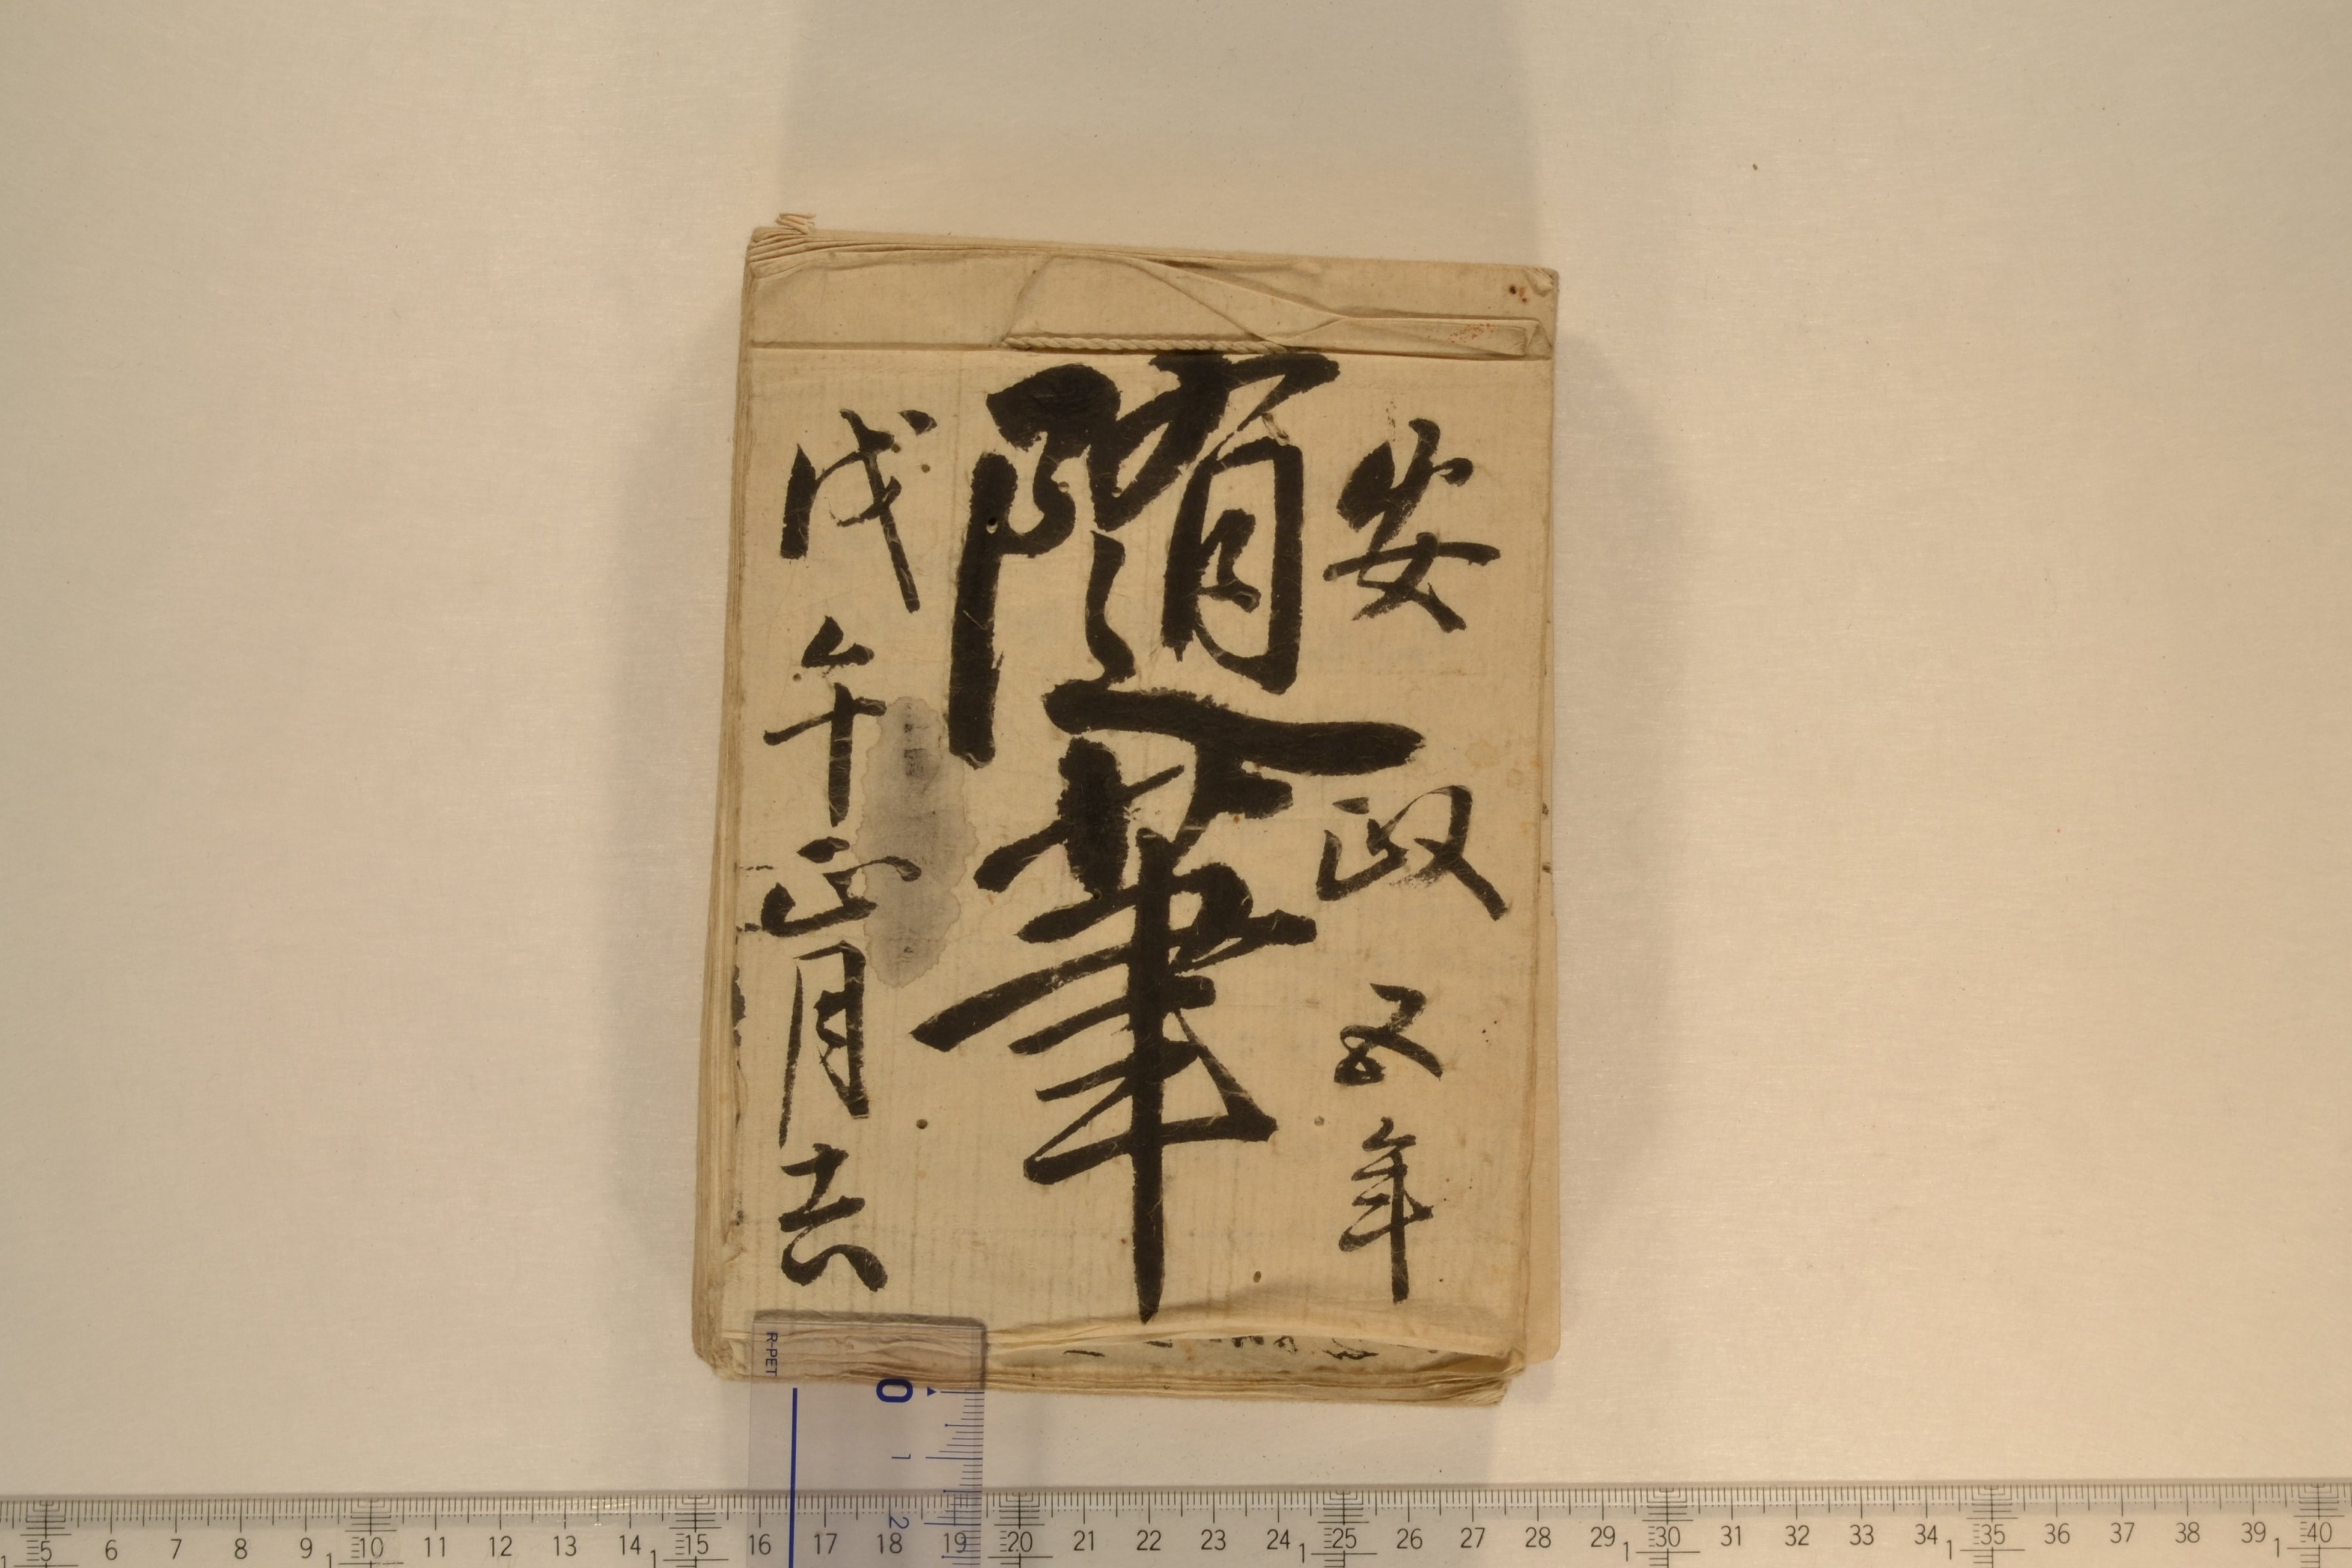 安政五年
随筆
戊午正月吉
R-PET
0
1
2
5 6 7 8 9 10 11 12 13 14 15 16 17 18 19 20 21 22 23 24 25 26 27 28 29 30 31 32 33 34 35 36 37 38 39 40